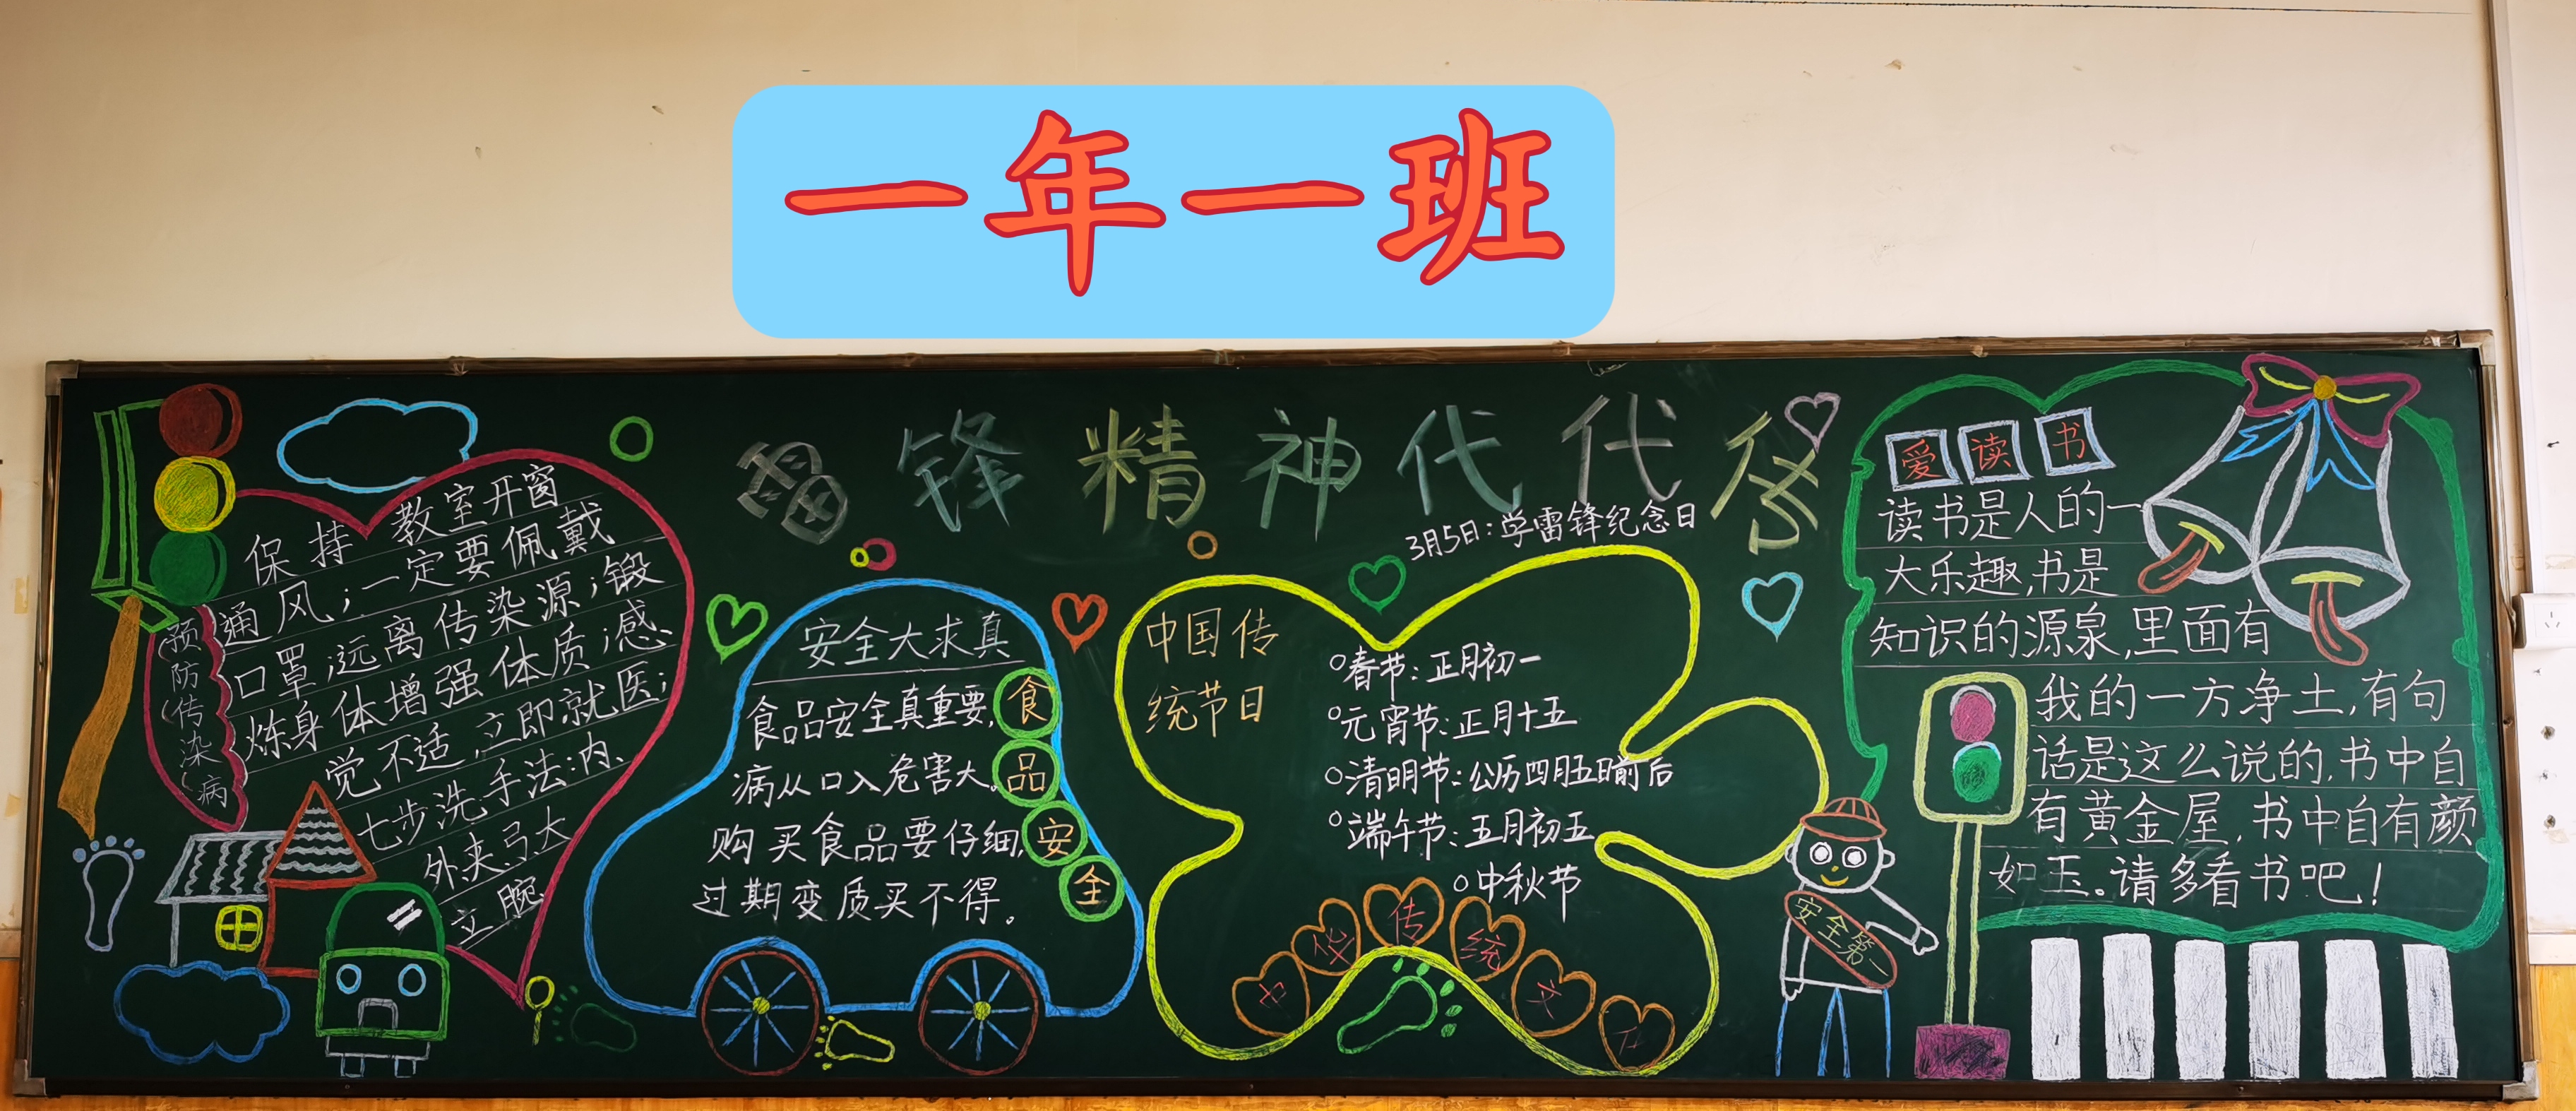 一年一班
雷锋精神代代传
3月5日:学雷锋纪念日
预防传染病
保持教室开窗
通风;一定要佩戴
口罩;远离传染源;锻
炼身体增强体质;感
觉不适,立即就医;
七步洗手法:内、
外夹弓大
立腕
安全大求真
食品安全真重要,
病从口入危害大。
购买食品要仔细,
过期变质买不得。
食品安全
中国传
统节日
春节:正月初一
元宵节:正月十五
清明节:公历四月五日前后
端午节:五月初五
中秋节
中华传统文化
爱读书
读书是人的一
大乐趣,书是
知识的源泉,里面有
我的一方净土,有句
话是这么说的,书中自
有黄金屋,书中自有颜
如玉。请多看书吧!
安全第一